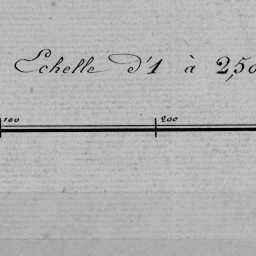 Echelle d'1 à 2,50
100 200